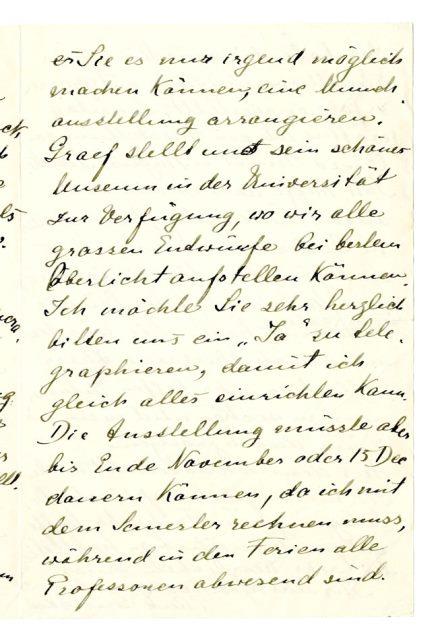 es Sie es nur irgend möglich
machen können, eine Munch
ausstellung arrangieren.
Graef stellt uns sein schönes
Museum in der Universität
zur Verfügung, wo wir alle
grossen Entwürfe bei bestem
Oberlicht aufstellen können.
Ich möchte Sie sehr herzlich
bitten uns ein „Ja" zu tele-
graphieren, damit ich
gleich alles einrichten kann.
Die Ausstellung müsste aber
bis Ende November oder 15 Dec
dauern können, da ich mit
dem Semester rechnen muss,
während in den Ferien alle
Professoren abwesend sind.